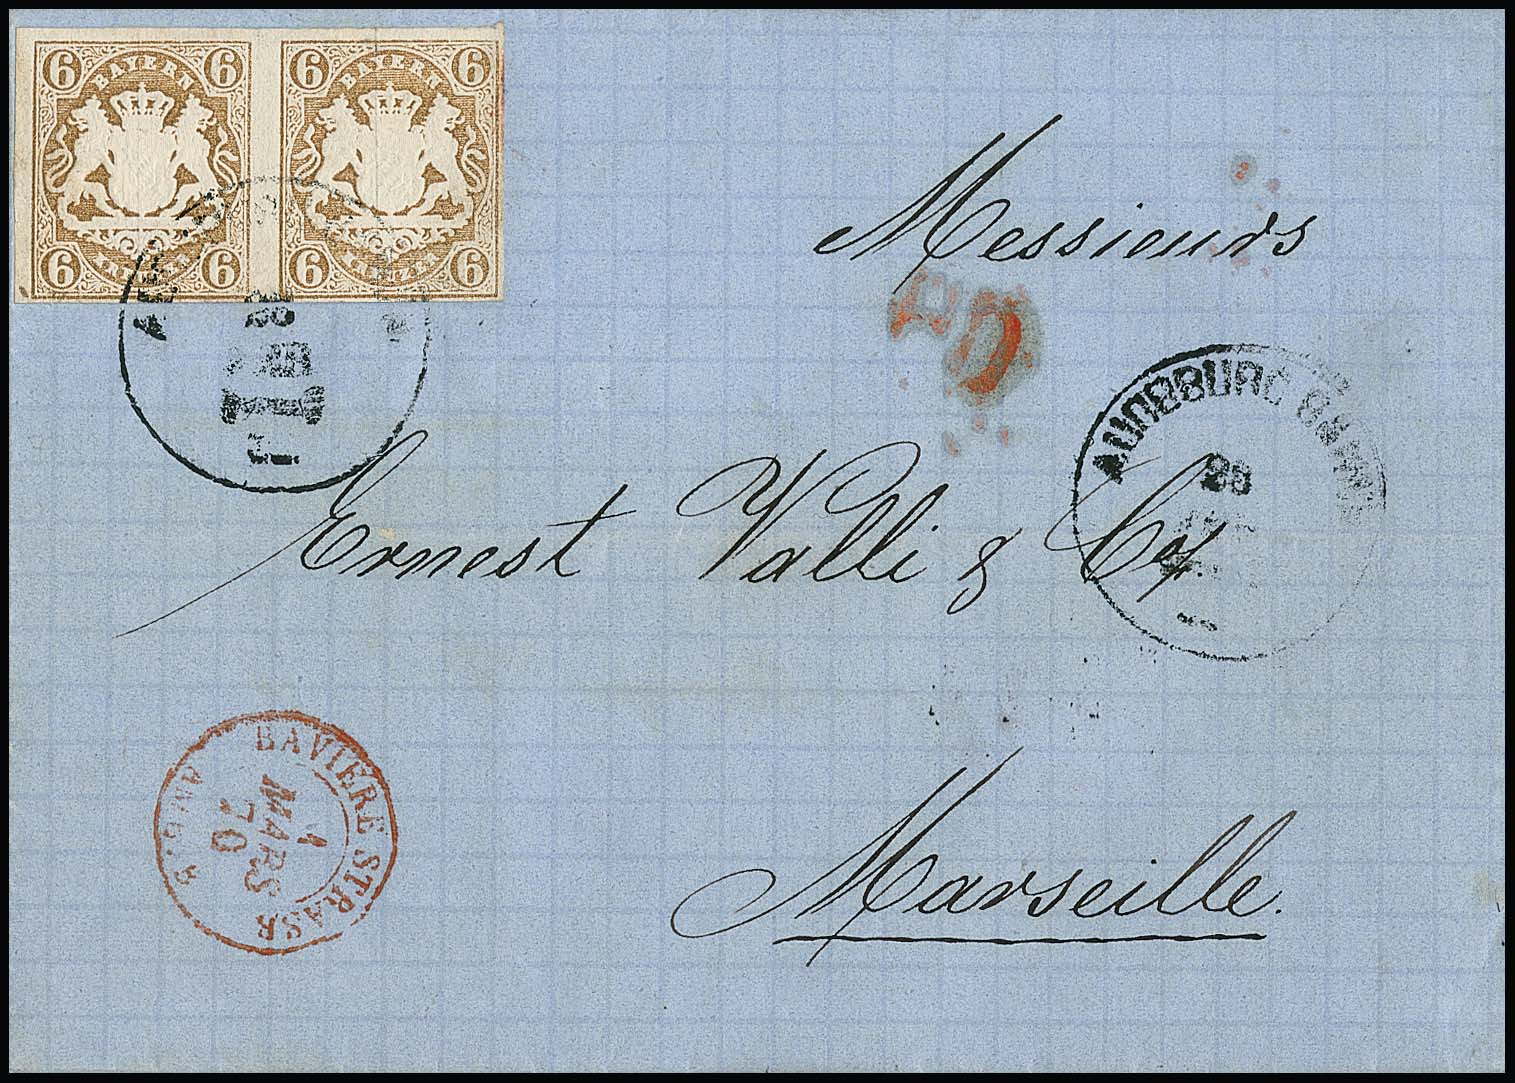 6 BAYERN 6
6 KREUZER 6
6 BAYERN 6
6 KREUZER 6
Messieurs
PD
AUGSBURG
28
Ernest Valli & Co/.
BAVIERE STRASB
1
MARS
70
Marseille.